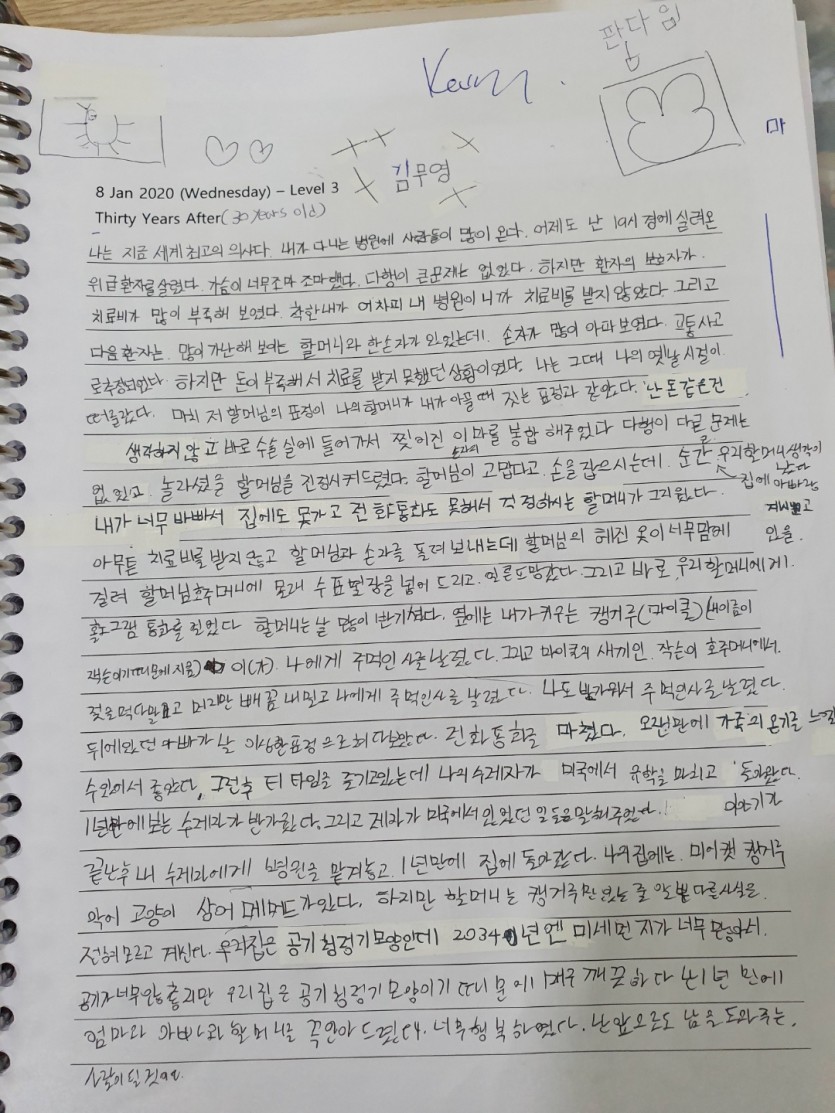 판다임
Kevin
마
김무영
8 Jan 2020 (Wednesday) – Level 3
Thirty Years After (30 years old)
나는 지금 세계 최고의 의사다. 내가 다니는 병원에 사람들이 많이 온다. 어제도 난 19시 경에 실려온
위급환자를 살렸다. 가슴이 너무 조마 조마했다. 다행이 큰문제는 없었다. 하지만 환자의 보호자가.
치료비가 많이 부족해 보였다. 착한내가 어차피 내 병원이니까 치료비를 받지 않았다. 그리고
다음 환자는. 많이 가난해 보이는 할머니와 한손자가 와있는데. 손자가 많이 아파 보였다. 교통사고
로 추정되었다. 하지만 돈이 부족해서 치료를 받지 못했던 상황이였다. 나는 그때 나의 옛날 시절이
떠올랐다. 마치 저 할머님의 표정이 나의할머니가 내가 아플 때 짓는 표정과 같았다. 난 돈같은건
생각하지 않고 바로 수술실에 들어가서 찢어진 이마를 봉합 해주었다 다행이 다른 문제는
없었고. 놀라셨을 할머님을 진정시켜드렸다. 할머님이 고맙다고. 손을 잡으시는데. 순간 우리할머니생각이
났다
내가 너무 바빠서 집에도 못가고 전화통화도 못해서 걱정하시는 할머니가 그리웠다. 집에 아빠랑
계시고
아무튼 치료비를 받지 않고 할머님과 손자를 돌려보내는데 할머님의 헤진 옷이 너무맘에
있을.
걸려 할머님 호주머니에 몰래 수표 몇장을 넣어 드리고. 얼른도망갔다. 그리고 바로, 우리할머니에게.
홀로그램 통화를 걸었다 할머니는 날 많이 반기셨다. 옆에는 내가 키우는 캥거루(마이클)(새이름이
잭슨이기 때문에 지음) 이(가). 나에게 주먹인사를 날렸다. 그리고 마이클의 새끼인. 잭슨이 호주머니에서.
젖을 먹다말고 머리만 빼꼼 내밀고 나에게 주먹인사를 날렸다. 나도 반가워서 주먹인사를 날렸다.
뒤에있던 아빠가 날 이상한표정으로 쳐다보았다. 전화통화를 마쳤다. 오랜만에 가족의 온기를 느낄
수있어서 좋았다. 그런후 티 타임을 즐기고있는데 나의 수제자가 미국에서 유학을 마치고 돌아왔다.
1년만에 보는 수제자가 반가웠다. 그리고 제자가 미국에서 있었던 일들을 말해주었다. 이야기가
끝난후 내 수제자에게 병원을 맡겨놓고. 1년만에 집에 돌아갔다. 나의집에는. 미어캣 캥거루
악어 고양이 상어 가있다. 하지만 할머니는 캥거루만 있는 줄 알뿐 다른사실은.
전혀 모르고 계신다. 우리집은 공기청정기모양인데 2034년엔 미세먼지가 너무 많아서.
공기가너무안좋지만 우리집은 공기청정기모양이기 때문에 매우 깨끗하다 난1년 만에
엄마와 아빠와 할머니를 꼭안아 드렸다. 너무행복하였다. 난앞으로도 남을 도와주는.
사람이 될 것이다.